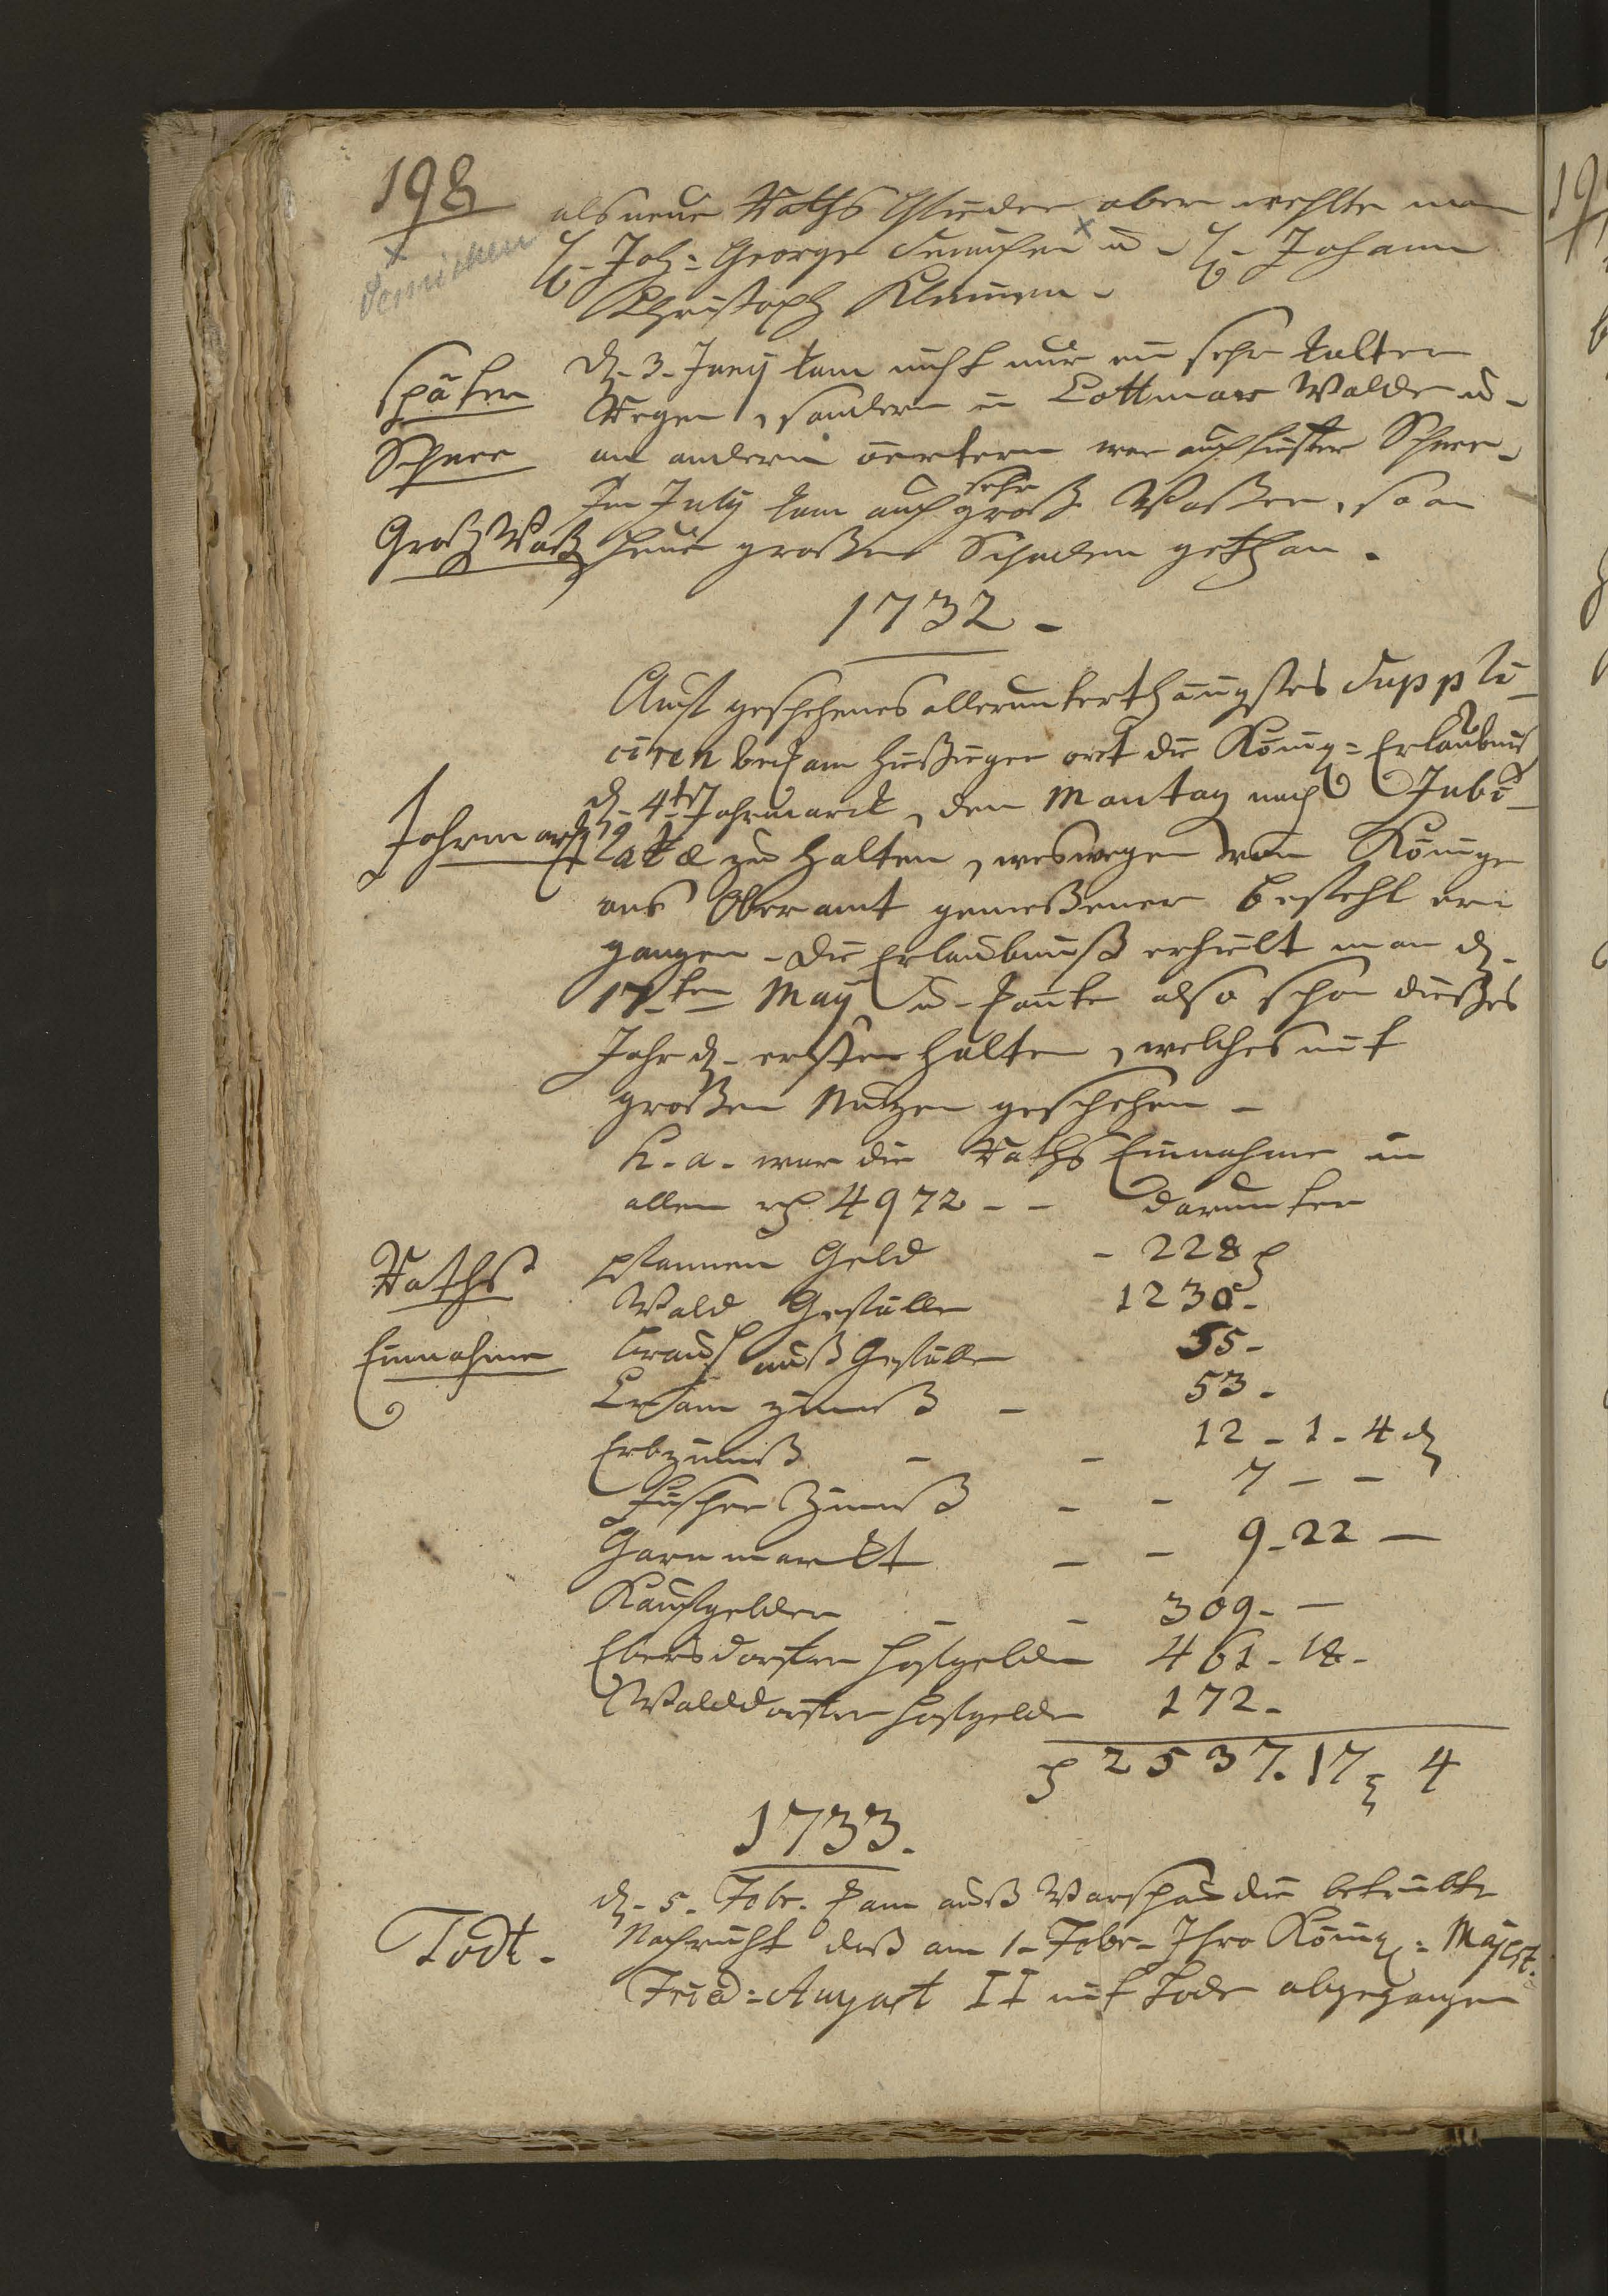 198
als neue Raths Glieder aber wehlte man
H. Joh: George Semichen u. H. Johann
x
Semichen
Christoph Klemmen.
Später
Schnee
d. 3. Juny kam nicht nur ein sehr kalter
Regen, sondern in Cottmar Walde u.
an andern oertern war auch Schnee.
Im July kam auch sehr groß Waßer, so an
Groß Waß
Heue großen Schaden gethan.
1732.
Auf geschehenes allerunterthänigstes Suppli-
ciren bekam hießiger ort die König: Erlaubniß
d. 4ten Jahrmarck, den Montag nach Jubi-
Jahrmarkt
latæ zu halten, weswegen vom Könige
ans Ober amt gemeßener Befehl er-
gangen. Die Erlaubniß erhielt man d.
17ten May u. konte also schon dießes
Jahr d. ersten halten, welches mit
großen Nutzen geschehen.
h. a. war die Raths Einnahme in
allem rh 4972 - - darunter
Raths
Einnahme
pfannen Geld - 228
Wald Gefälle 1230 -
Brauhauß Gefälle 55 -
zinnß - 53 -
Erbzinnß - - 12 - 1 - 4 d
Fischer Zinnß - - 7 - -
Garnmarckt - - 9 - 22 -
Kaufgelder - - 309 - -
Ebersdorfer hofgelder 461 - 18 -
Walddorfer hofgelder 172 -
2537. 17 4
1733.
d. 5. Febr. kam auß Warschau die betrübte
Todt.
Nachricht daß am 1. Febr. Ihro König: Majest.
Fried: August II mit Tode abgegangen